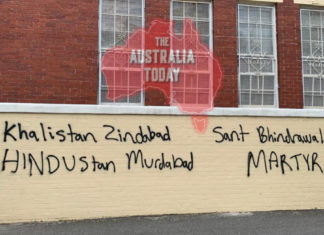 THE
AUSTRALIA
TODAY
Khalistan Zindabad
HINDUstan Murdabad
Sant Bhindrawal
MARTYR